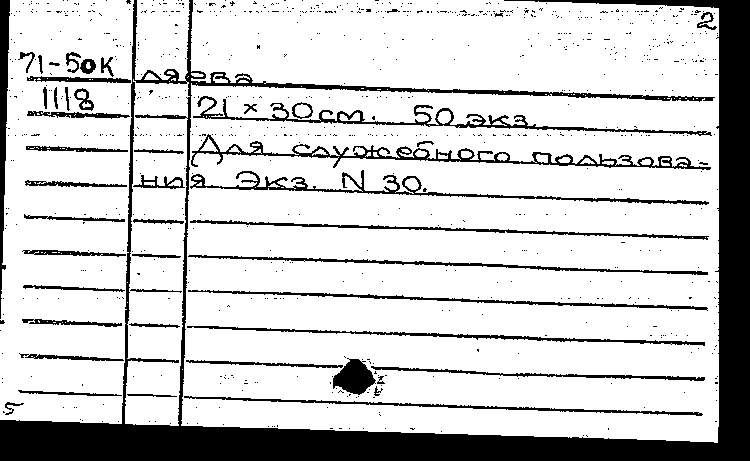 2
71-5ок ляева.
1118 21 × 30 см. 50 экз.
Для служебного пользова=
ния Экз. N 30.
5